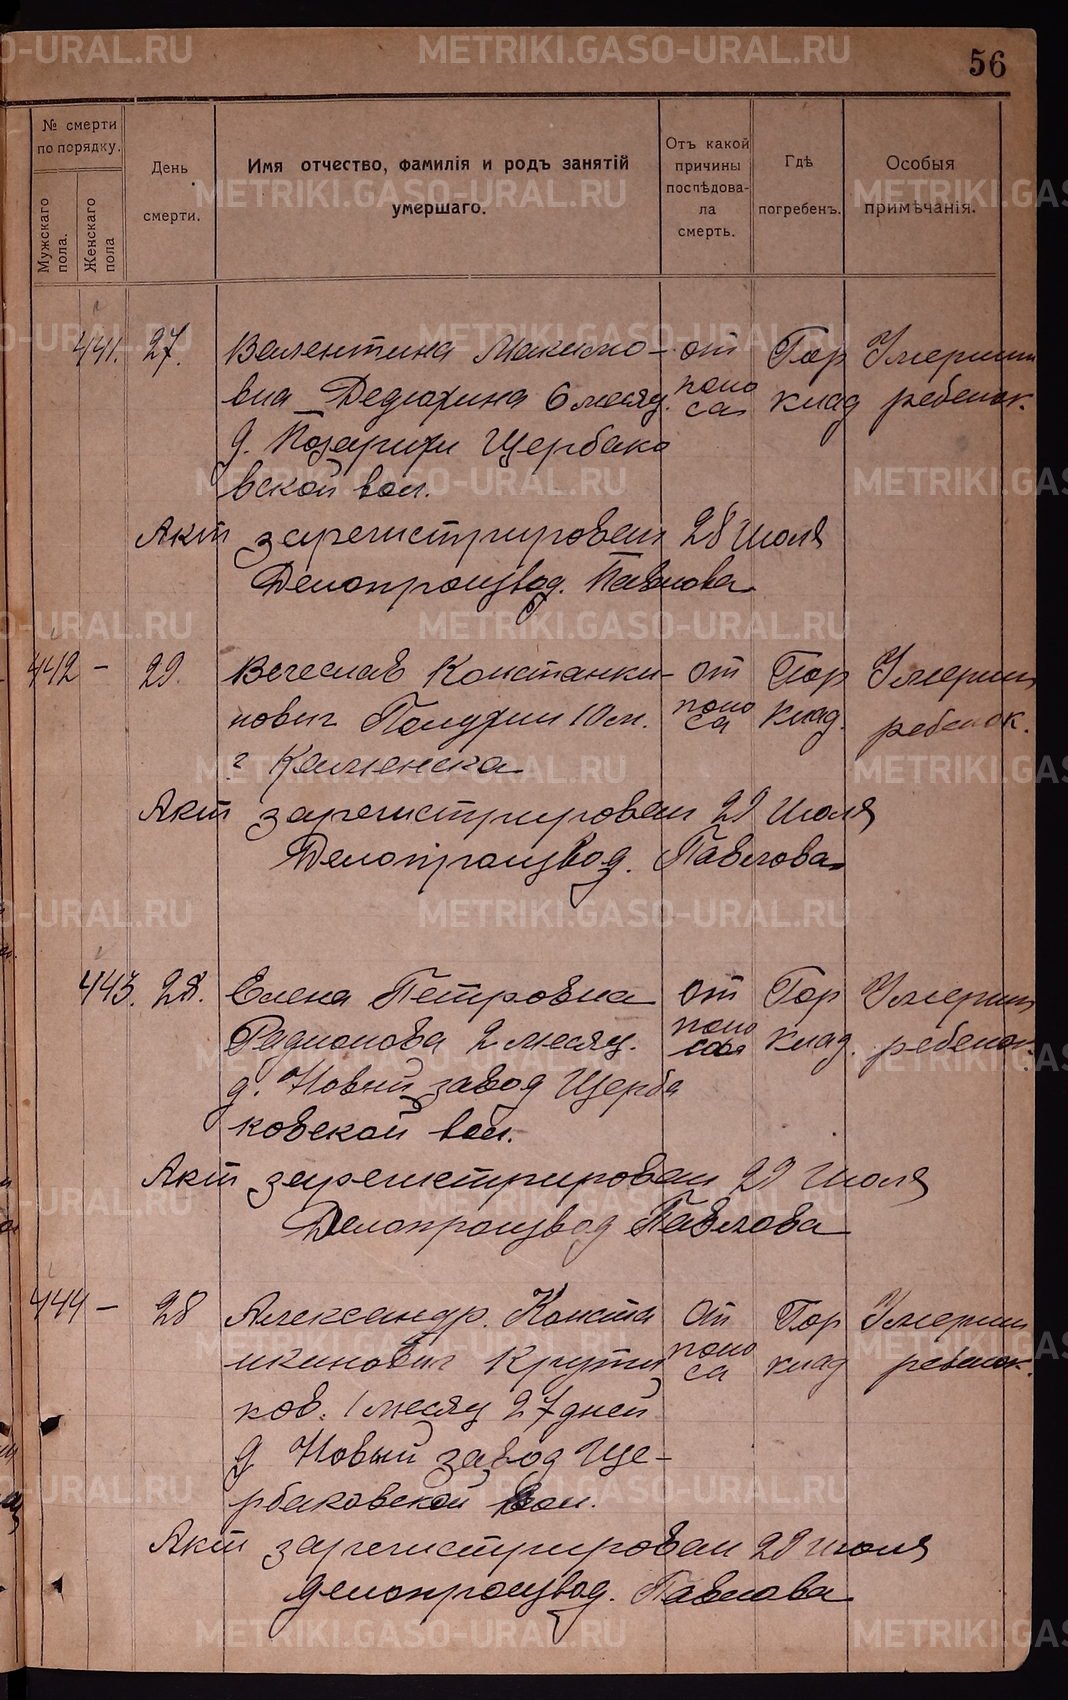 56
№ смерти
по порядку.
Мужскаго
пола.
Женскаго
пола
День
смерти.
Имя отчество, фамилія и родъ занятій
умершаго.
Отъ какой
причины
послѣдова-
ла
смерть.
Гдѣ
погребенъ.
Особыя
примѣчанія.
441. 27. Валентина Максимо- от Гор Умерший
вна Дедюхина 6 месяц. поно клад ребенок.
са
д. Позарихи Щербако
вской вол.
Акт зарегистрирован 28 Июля
Делопроизвод. Павлова
442 - 29. Вечеслав Констанки- от Гор Умерший
нович Полухин 10 м. поно клад. ребенок.
са
г Каменска
Акт зарегистрирован 29 Июля
Делопроизвод. Павлова
443. 28. Елена Петровна от Гор Умерший
Радионова 2 месяц. поно клад. ребенок.
д. Новый завод Щерба
ковской вол.
Акт зарегистрирован 29 Июля
Делопроизвод Павлова
444 - 28 Александр. Конста От Гор Умерший
нкинович Крути поно клад ребенок.
са
ков. 1 месяц 27 дней
д Новый завод Ще-
рбаковской вол.
Акт зарегистрирован 29 июля
делопроизвод. Павлова
METRIKI.GASO-URAL.RU